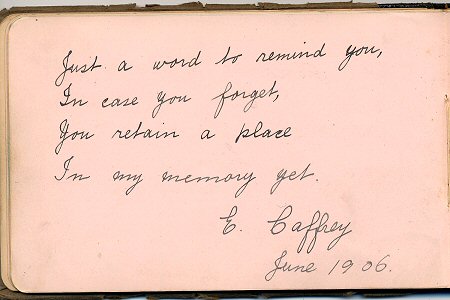 Just a word to remind you,
In case you forget,
You retain a place
In my memory yet.
E. Caffrey
June 1906.